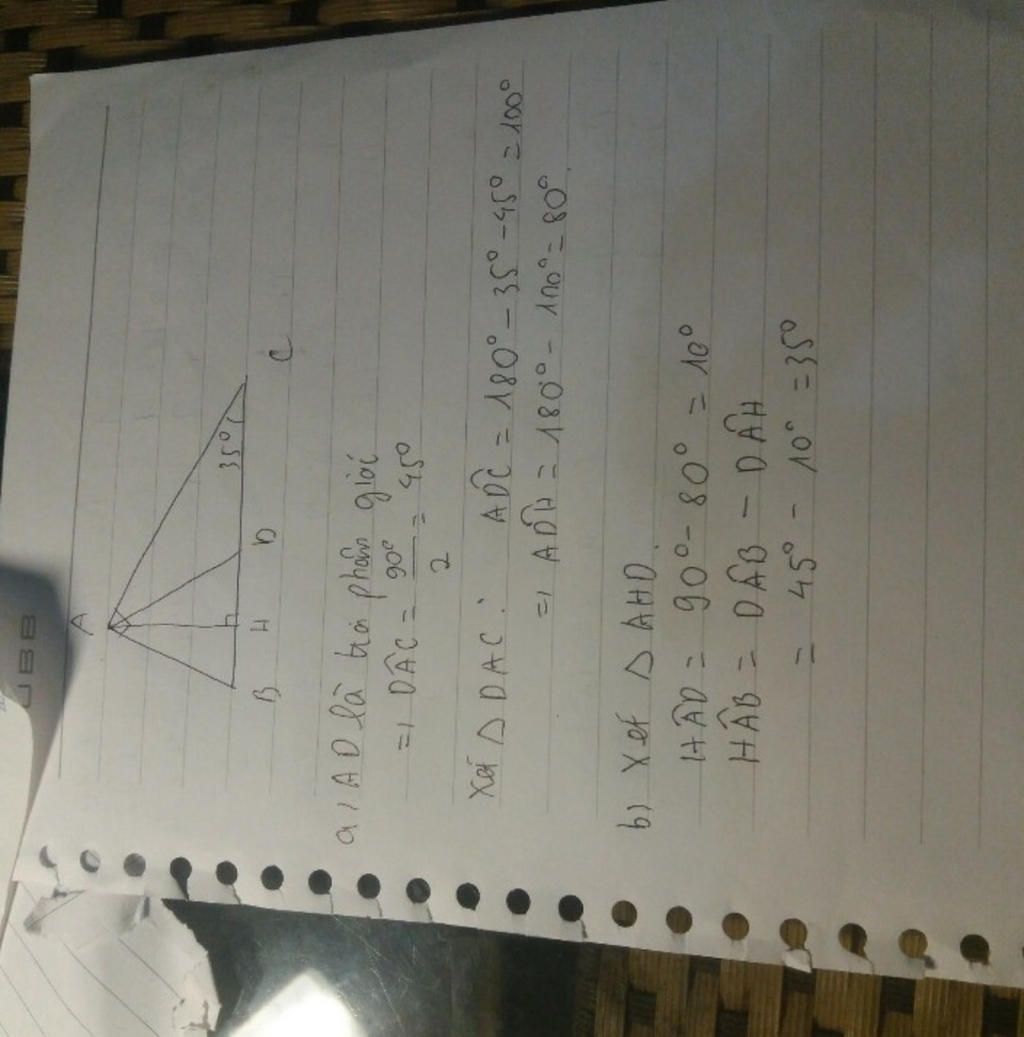 UBB
A
35°
B H D C
a, AD là tia phân giác
=) DÂC = 90°/2 = 45°
Xét Δ DAC: AD̂C = 180° - 35° - 45° = 100°
=) AD̂H = 180° - 100° = 80°.
b) Xét Δ AHD.
HÂD = 90° - 80° = 10°
HÂB = DÂB - DÂH
= 45° - 10° = 35°